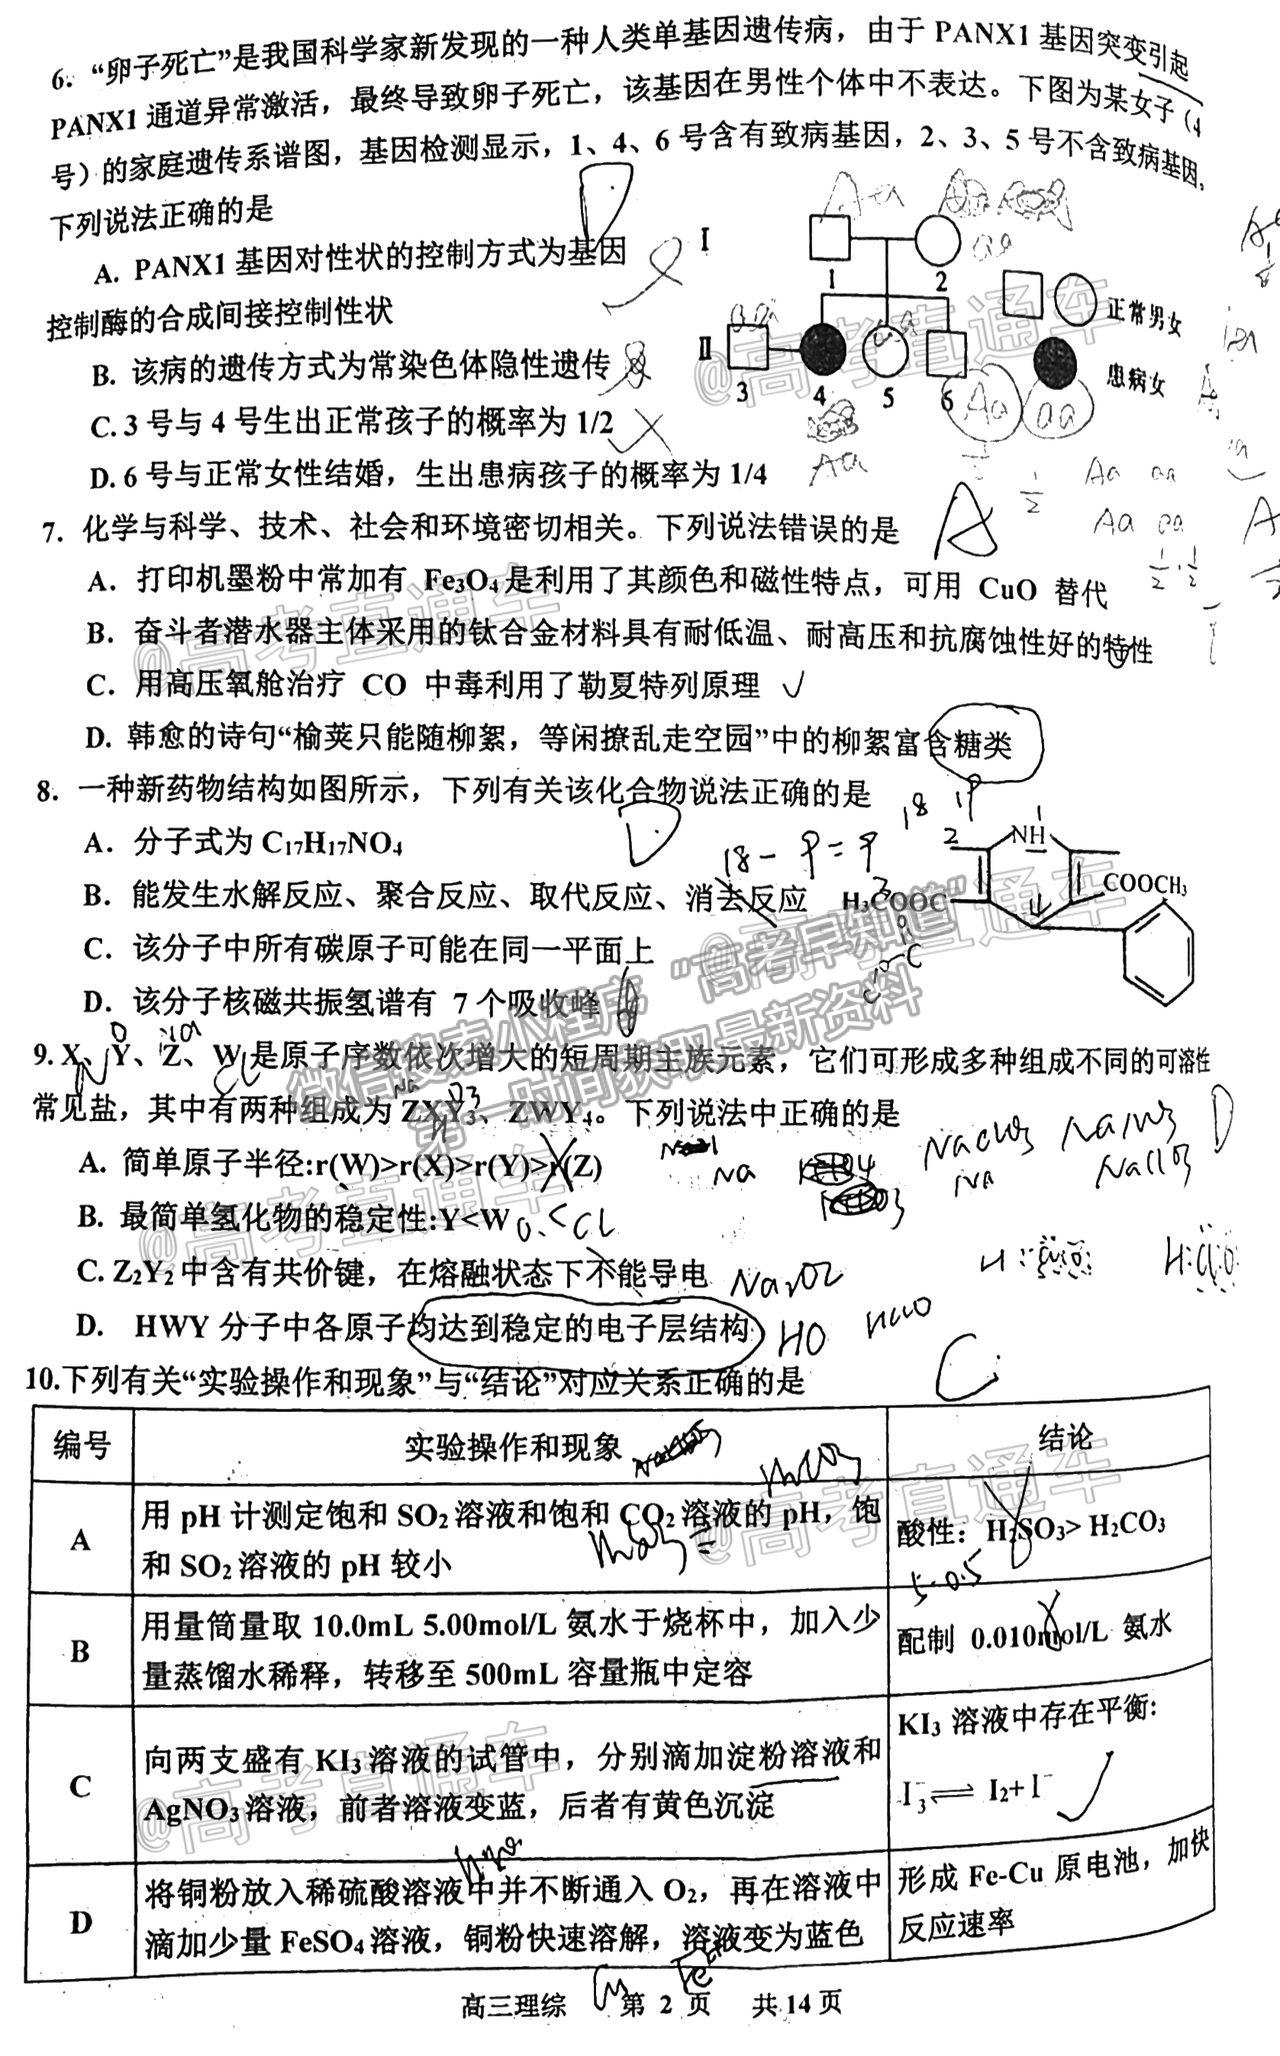 6. “卵子死亡”是我国科学家新发现的一种人类单基因遗传病，由于 PANX1 基因突变引起
PANX1 通道异常激活，最终导致卵子死亡，该基因在男性个体中不表达。下图为某女子（4
号）的家庭遗传系谱图，基因检测显示，1、4、6 号含有致病基因，2、3、5 号不含致病基因，
下列说法正确的是
D
A+a
aa
A. PANX1 基因对性状的控制方式为基因
控制酶的合成间接控制性状
B. 该病的遗传方式为常染色体隐性遗传
C. 3 号与 4 号生出正常孩子的概率为 1/2
D. 6 号与正常女性结婚，生出患病孩子的概率为 1/4
I
1
2
II
3
4
5
6
正常男女
患病女
Aa
Aa
aa
1/2
Aa aa
Aa aa
7. 化学与科学、技术、社会和环境密切相关。下列说法错误的是
A
A. 打印机墨粉中常加有 Fe3O4 是利用了其颜色和磁性特点，可用 CuO 替代
B. 奋斗者潜水器主体采用的钛合金材料具有耐低温、耐高压和抗腐蚀性好的特性
C. 用高压氧舱治疗 CO 中毒利用了勒夏特列原理
D. 韩愈的诗句“榆荚只能随柳絮，等闲撩乱走空园”中的柳絮富含糖类
8. 一种新药物结构如图所示，下列有关该化合物说法正确的是
D
A. 分子式为 C17H17NO4
18-9=9
B. 能发生水解反应、聚合反应、取代反应、消去反应
C. 该分子中所有碳原子可能在同一平面上
D. 该分子核磁共振氢谱有 7 个吸收峰
NH
H3COOC
COOCH3
9. X、Y、Z、W 是原子序数依次增大的短周期主族元素，它们可形成多种组成不同的可溶性
常见盐，其中有两种组成为 ZXY3、ZWY4。下列说法中正确的是
D
A. 简单原子半径:r(W)>r(X)>r(Y)>r(Z)
NaClO3 NaNO3
Na
B. 最简单氢化物的稳定性:Y<W
O<Cl
C. Z2Y2 中含有共价键，在熔融状态下不能导电
Na2O2
D. HWY 分子中各原子均达到稳定的电子层结构
HO
HClO
10.下列有关“实验操作和现象”与“结论”对应关系正确的是
C
编号 实验操作和现象 结论
A
用 pH 计测定饱和 SO2 溶液和饱和 CO2 溶液的 pH，饱
和 SO2 溶液的 pH 较小
酸性：H2SO3> H2CO3
B
用量筒量取 10.0mL 5.00mol/L 氨水于烧杯中，加入少
量蒸馏水稀释，转移至 500mL 容量瓶中定容
配制 0.010mol/L 氨水
C
向两支盛有 KI3 溶液的试管中，分别滴加淀粉溶液和
AgNO3 溶液，前者溶液变蓝，后者有黄色沉淀
KI3 溶液中存在平衡:
I3⁻⇌ I2+ I⁻
D
将铜粉放入稀硫酸溶液中并不断通入 O2，再在溶液中
滴加少量 FeSO4 溶液，铜粉快速溶解，溶液变为蓝色
形成 Fe-Cu 原电池，加快
反应速率
高三理综 第 2 页 共 14 页
@高考直通车
@高考直通车
@高考直通车
@高考直通车
@高考直通车
@高考直通车
微信搜索小程序“高考早知道”
第一时间获取最新资料